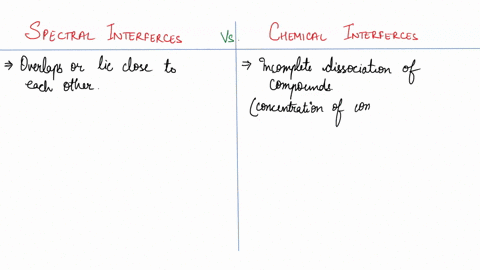 SPECTRAL INTERFERCES Vs. CHEMICAL INTERFERCES
⇒ Overlaps or lie close to
each other.
⇒ Incomplete dissociation of
compounds
(concentration of com